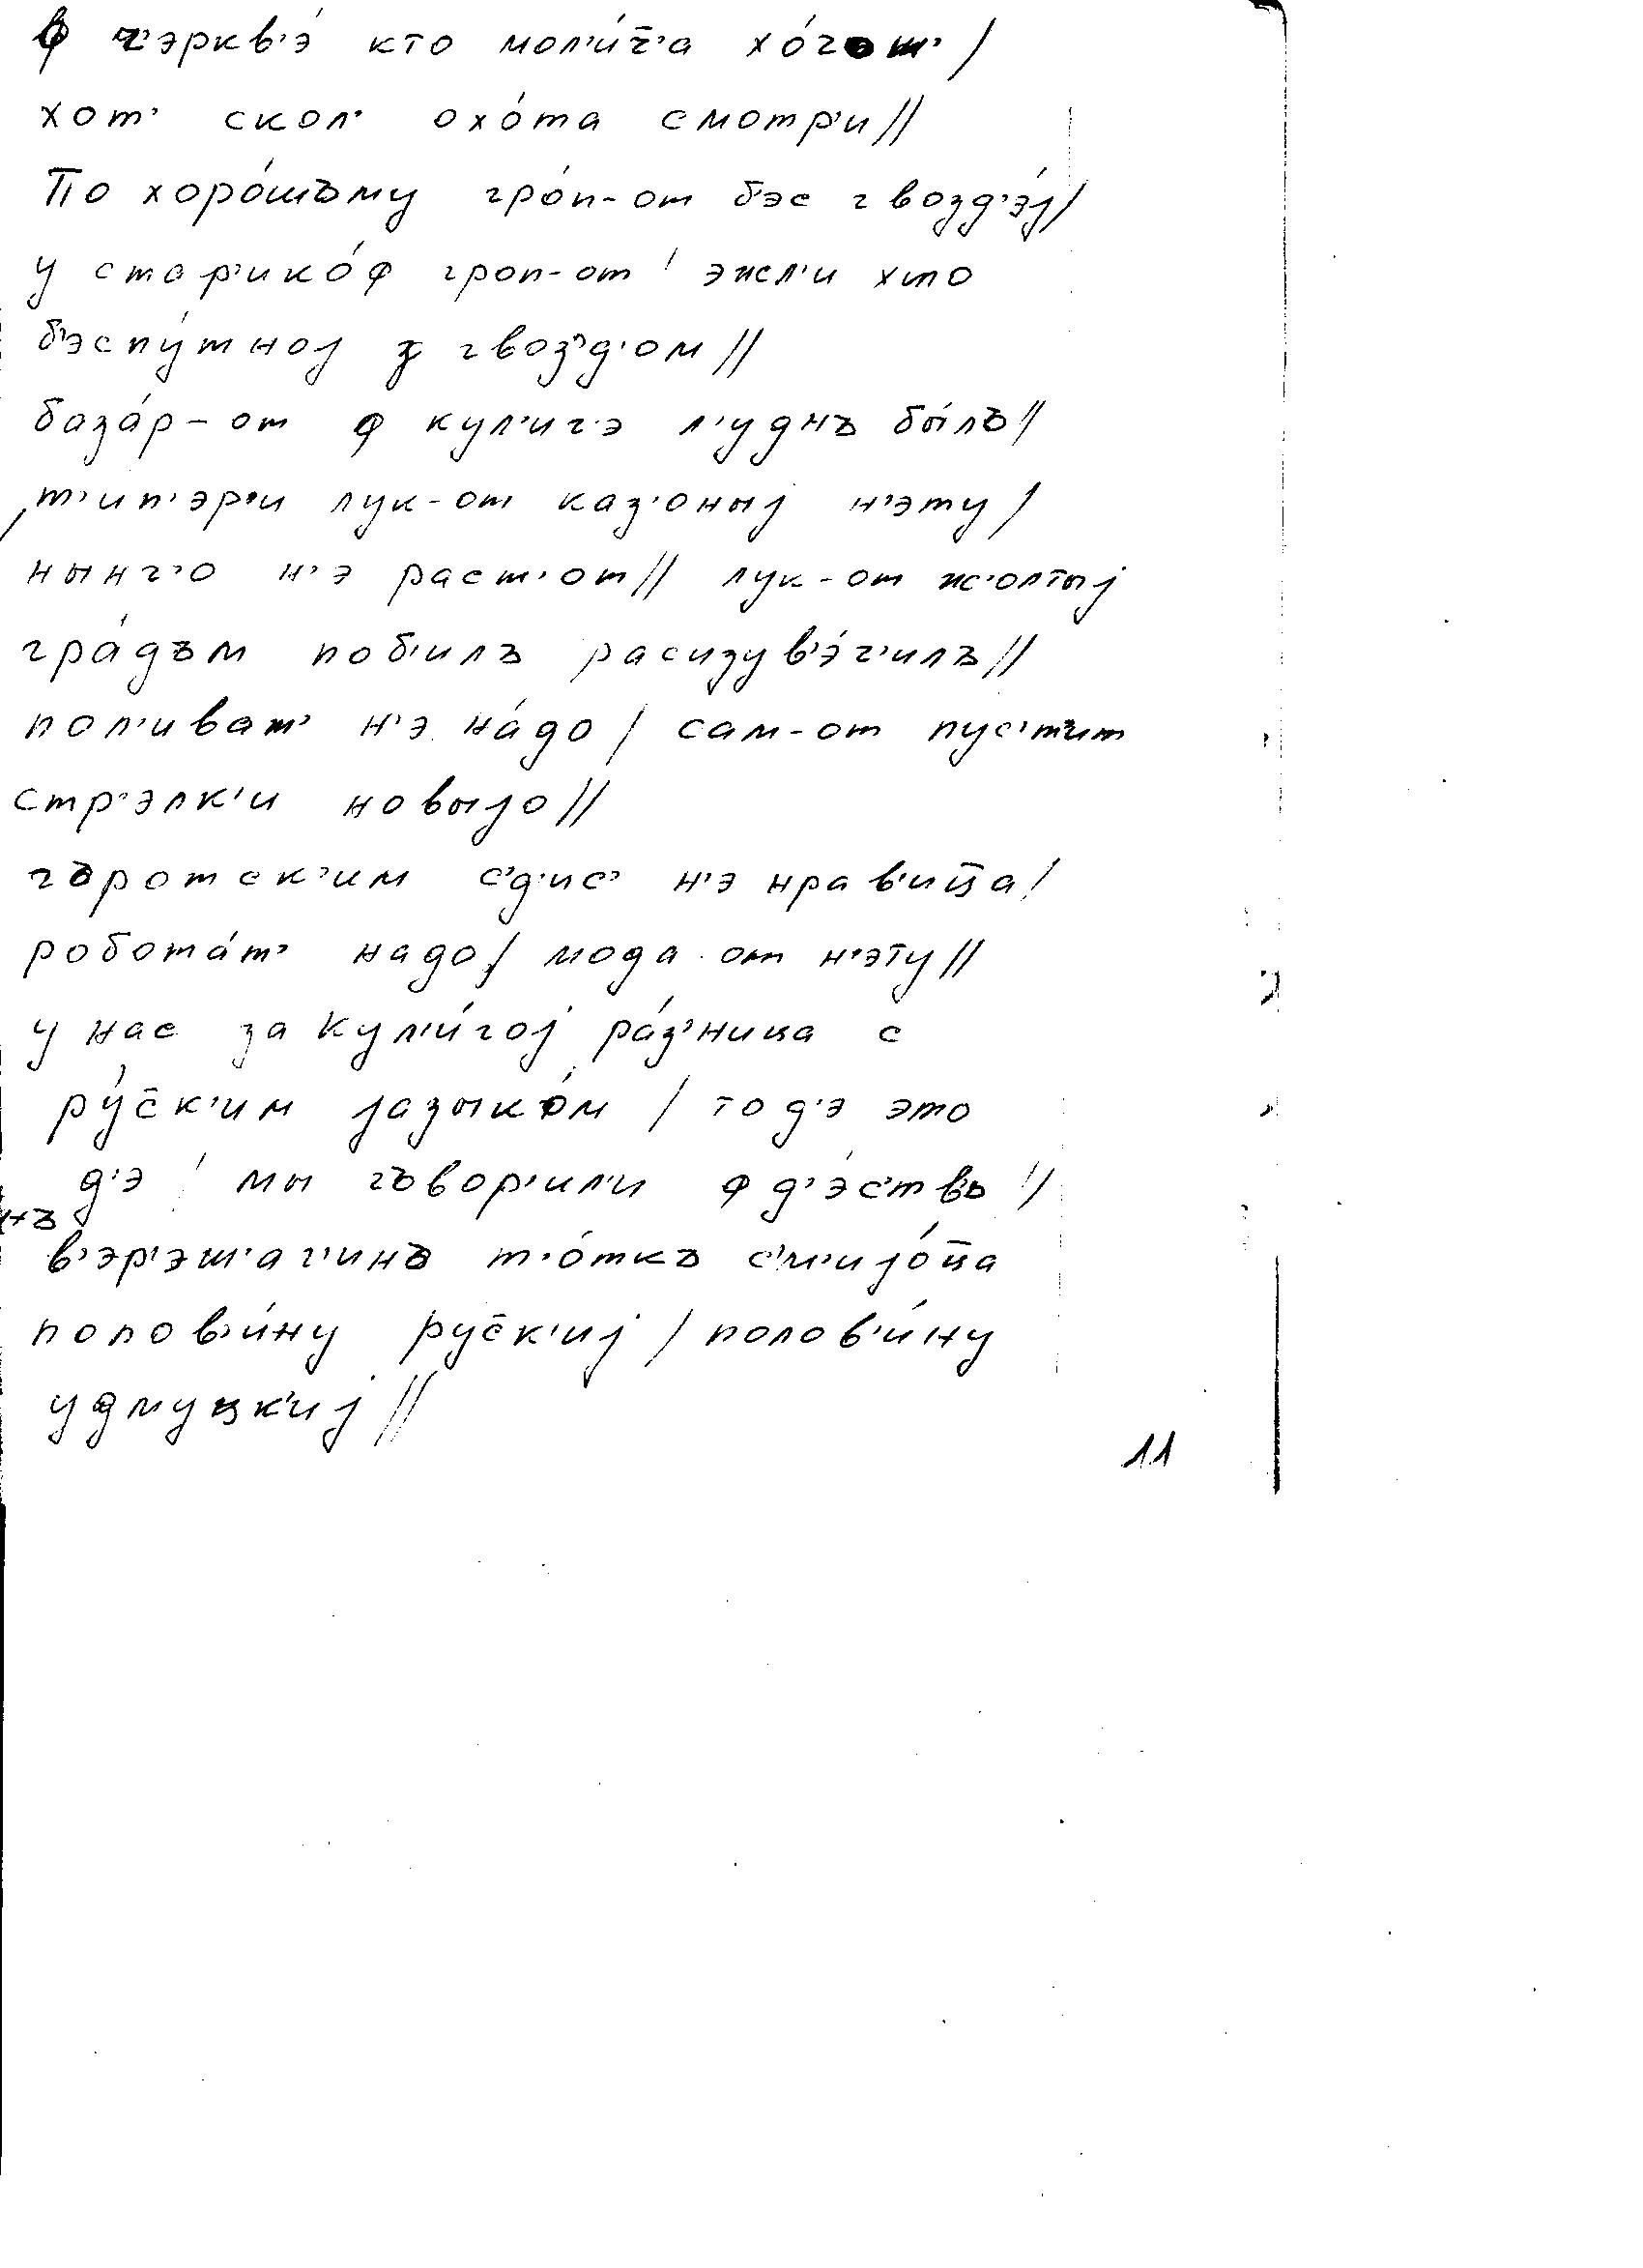 ф ч'эркв'э́ кто мол'и́ч̄'а хо́чот' /
хот' скол' охо́та смотр'и //
По хоро́шъму гро́п-от б'эс гвозд'э́j /
у стар'ико́ф гроп-от / эжл'и хто
б'эспу́тноj з гвоз'д'ом //
база́р-от ф кул'иг'э л'уднъ бы́лъ //
т'ип'эр'и лук-от каз'оныj н'эту /
нынч'о н'э раст'от // лук-от ж'олтыj
гра́дъм поб'илъ расизув'э́ч'илъ //
пол'иват' н'э на́до / сам-от пус'т'ит
стр'элк'и новыjо //
гъротск'им с'д'ис' н'э нрав'иц̄а /
робота́т' надо / мода-от н'эту //
у нас за Кул'и́гоj ра́з'ница с
ру́с̄к'им jазыко́м / то д'э это
д'э / мы гъвор'ил'и ф д'э́с'твъ //
в'эр'эш'аг'инъ т'о́ткъ с'м'иjо́ц̄а
полов'и́ну рус̄к'иj / полов'и́ну
удмуцк'иj //
11